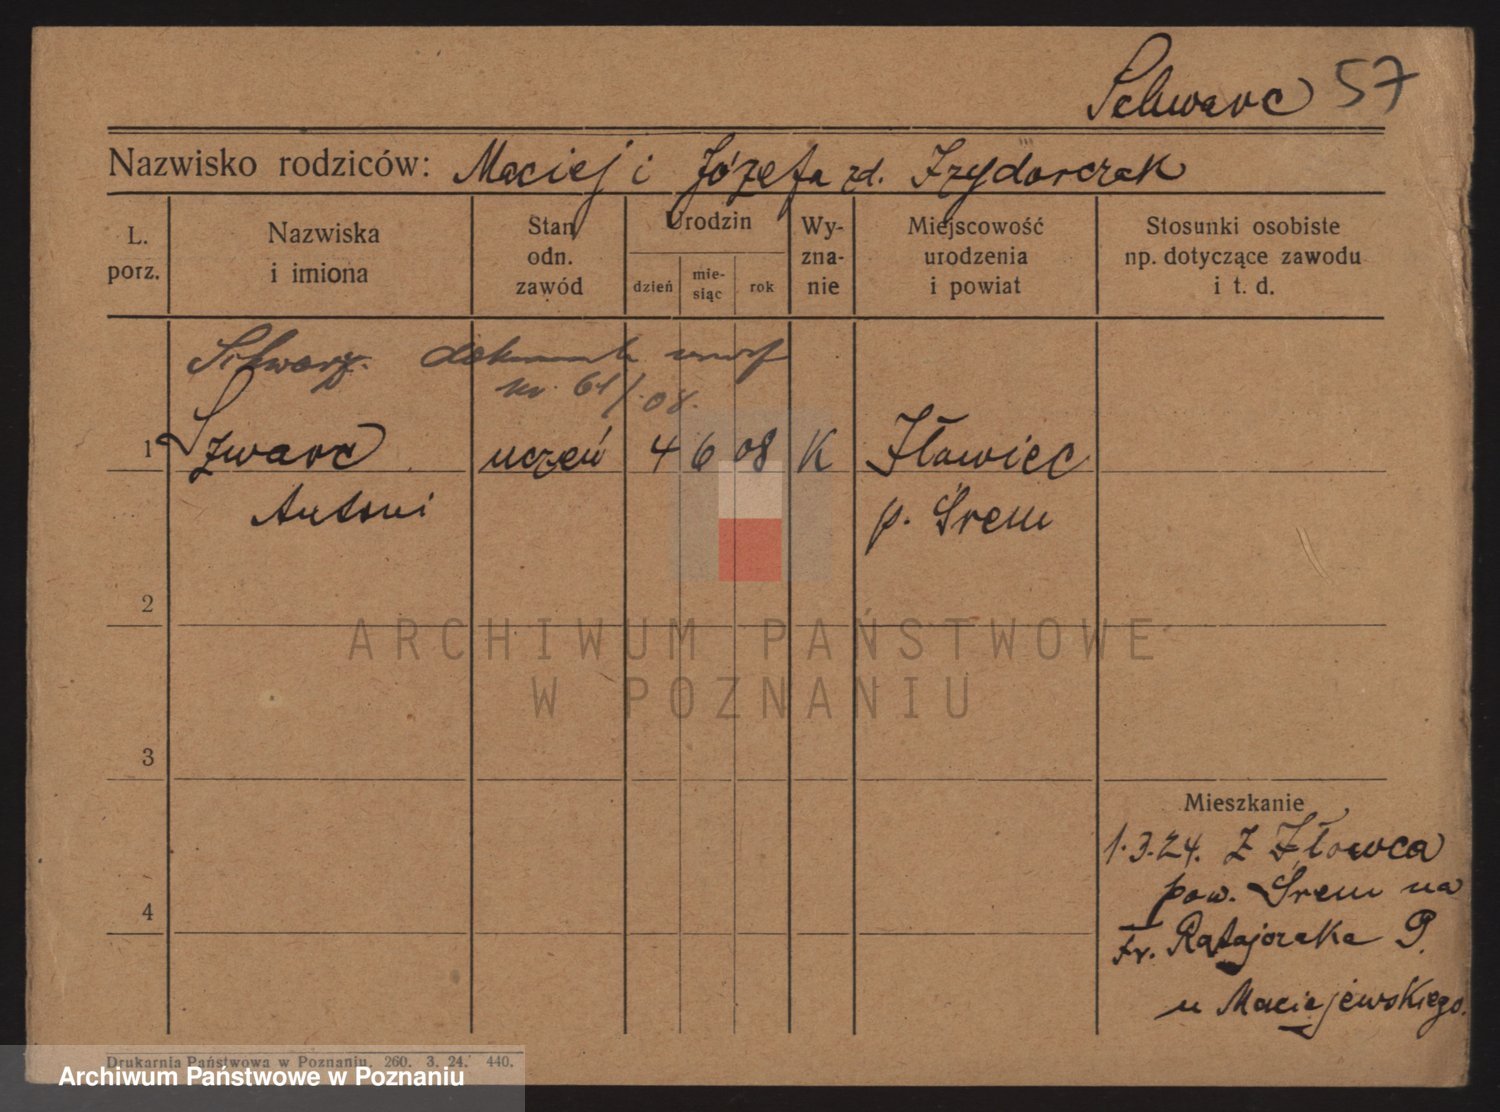 Schwarc 57
Nazwisko rodziców: Maciej i Józefa zd. Frydorczak
L. porz.
Nazwiska i imiona
Stan odn. zawód
Urodzin
dzień
mie-siąc
rok
Wy-zna-nie
Miejscowość urodzenia i powiat
Stosunki osobiste np. dotyczące zawodu i t. d.
Schwarz.
nr. 61/.08.
1 Szwarc uczeń 4 6 08 K Iłowiec
Antoni p. Śrem
2
3
4
Mieszkanie
1.3.24. z Iłowca
pow. Śrem na
Fr. Ratajczaka 9.
u Maciejewskiego.
Drukarnia Państwowa w Poznaniu. 260. 3. 24. 440.
ARCHIWUM PAŃSTWOWE
W POZNANIU
Archiwum Państwowe w Poznaniu